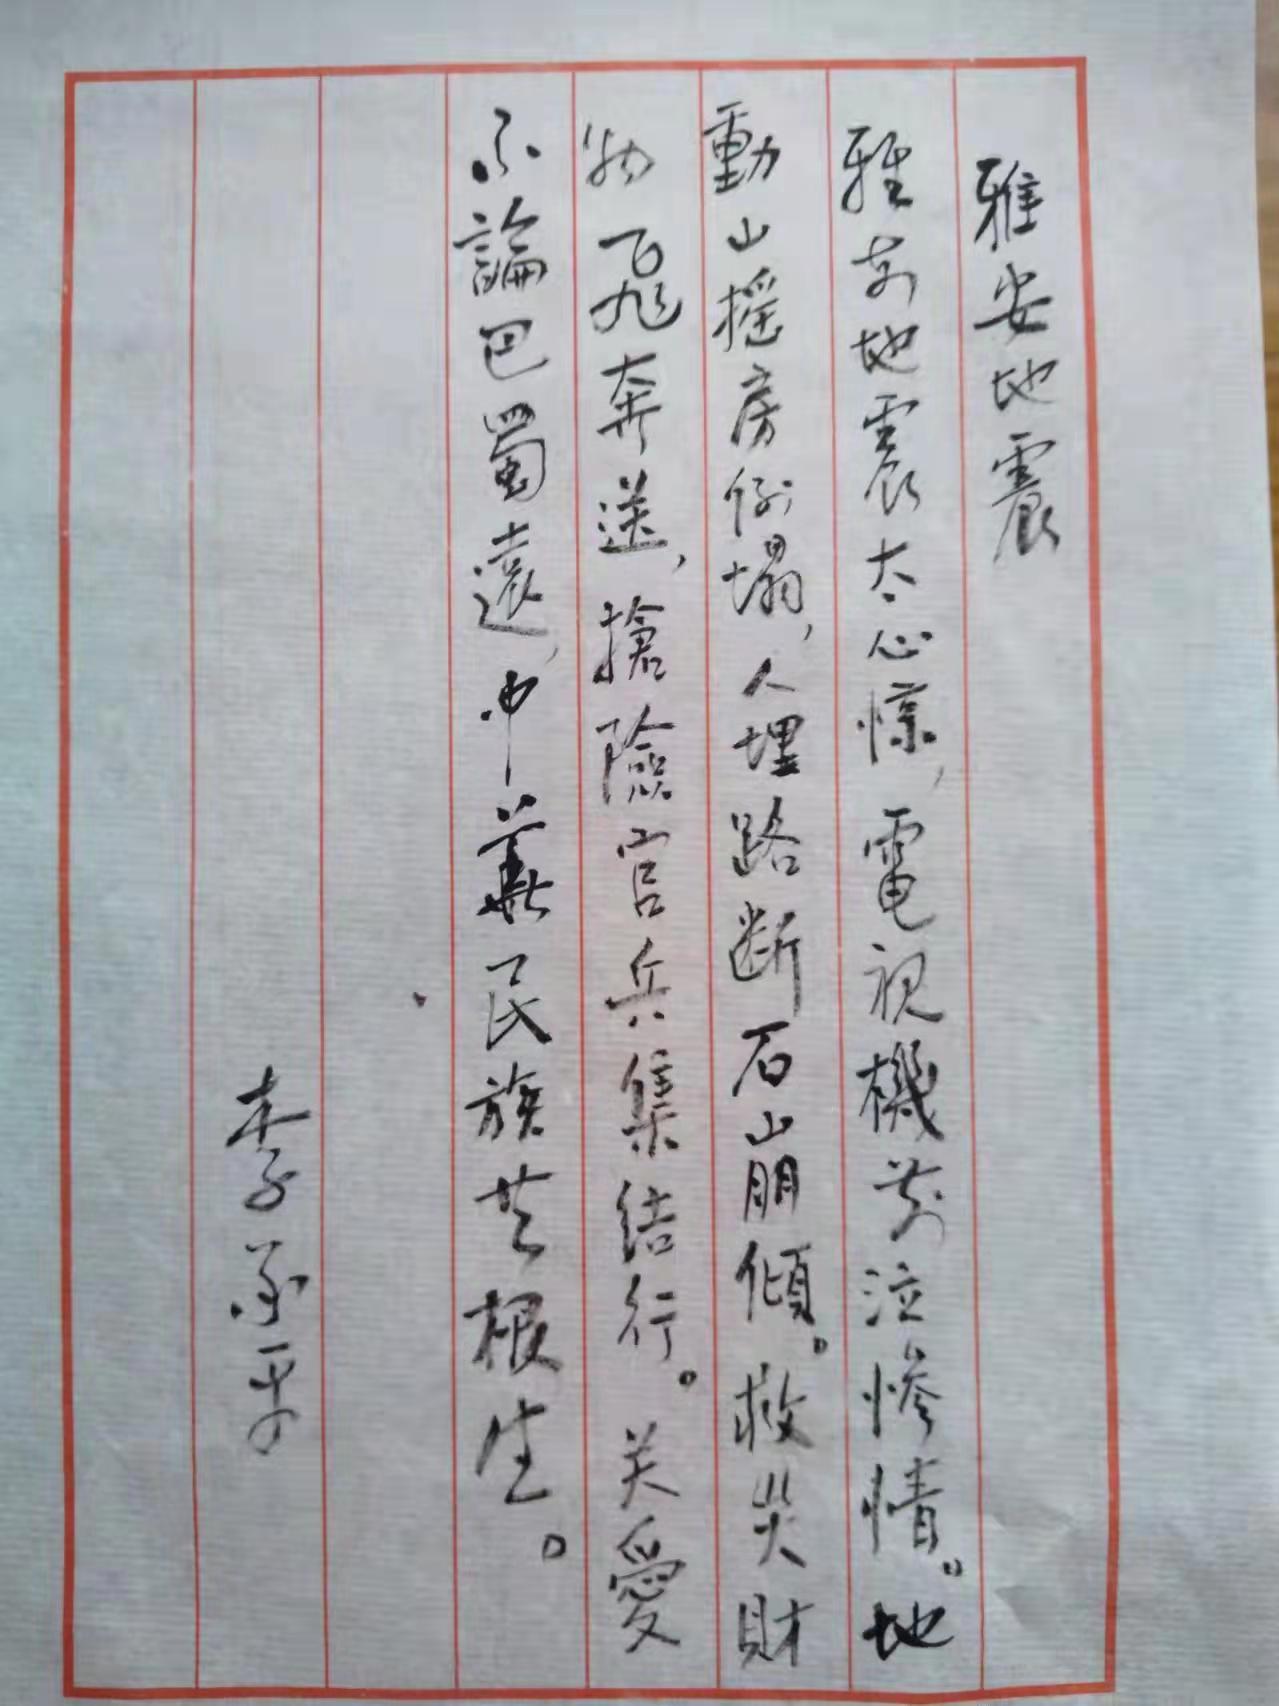 雅安地震
雅安地震太心惊，電視機前泣惨情。地
動山摇房倒塌，人埋路断石崩傾。救災財
物飛奔送，搶險官兵集結行。关愛
不論巴蜀遠，中華民族共根生。
李承平